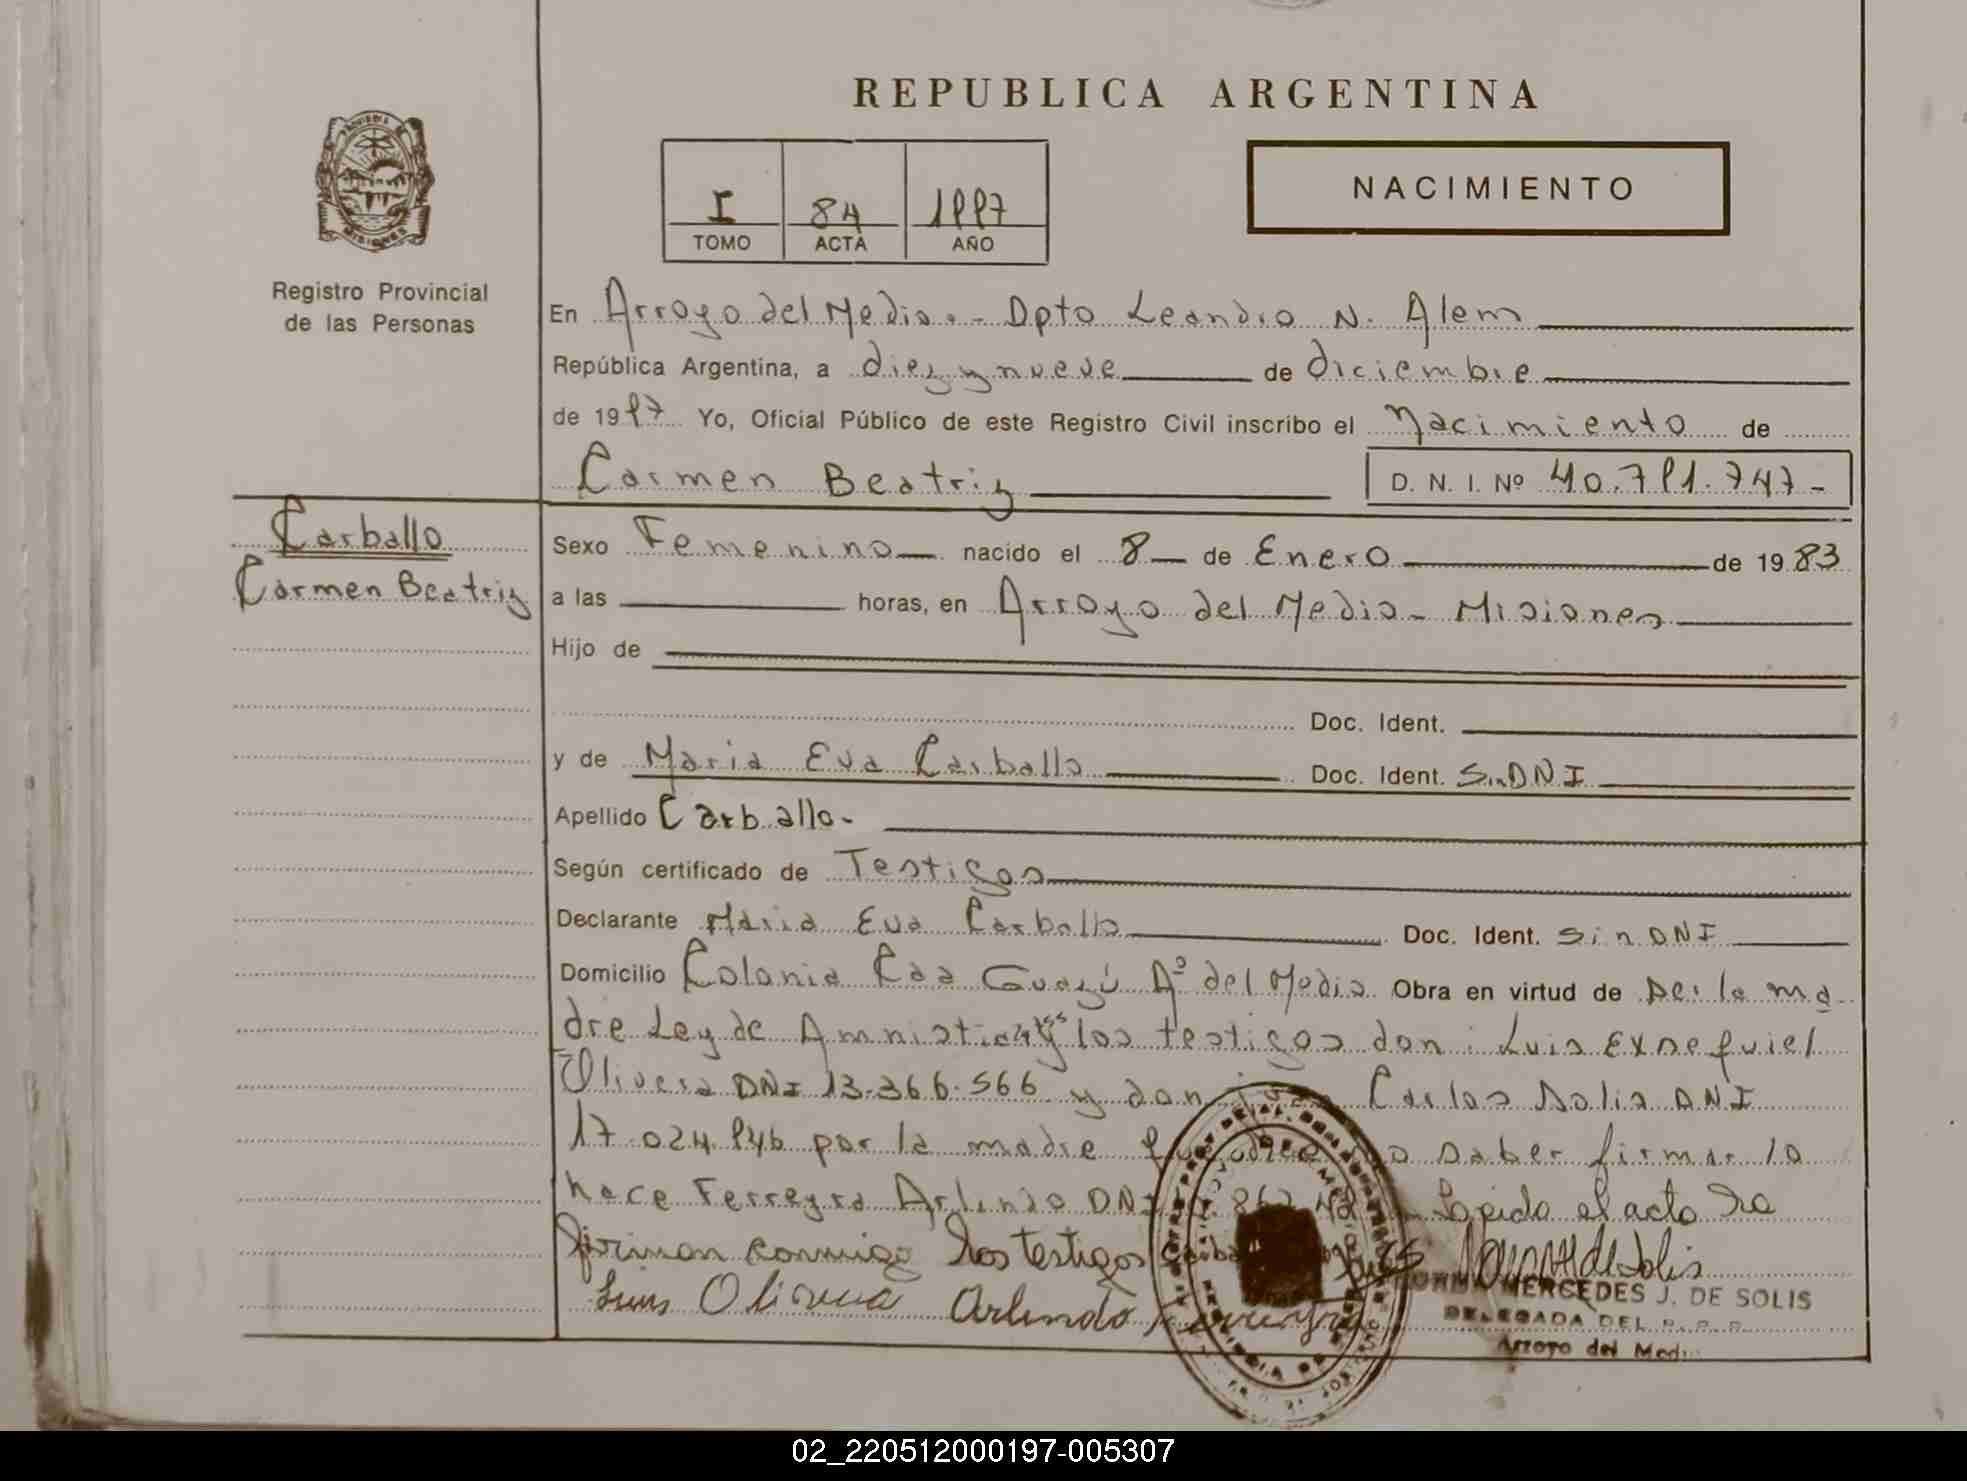 REPUBLICA ARGENTINA
I 84 1997
TOMO ACTA AÑO
NACIMIENTO
MISIONES
Registro Provincial
de las Personas
En Arroyo del Medio.- Dpto Leandro N. Alem
República Argentina, a diez y nueve de diciembre
de 1997 Yo, Oficial Público de este Registro Civil inscribo el Nacimiento de
Carmen Beatriz D. N. I. Nº 40.791.747-
Carballo
Carmen Beatriz
Sexo Femenino nacido el 8 de Enero de 1983
a las horas, en Arroyo del Medio - Misiones
Hijo de
Doc. Ident.
y de Maria Eva Carballo Doc. Ident. Sin DNI
Apellido Carballo-
Según certificado de Testigos
Declarante Maria Eva Carballo Doc. Ident. sin DNI
Domicilio Colonia Caa Guazú Aº del Medio Obra en virtud de ser la ma
dre Ley de Amnistia y los testigos don: Luis Exsequiel
Olivera DNI 13.366.566 y don Carlos Solis DNI
17.024.946 por la madre saber firmar lo
hace Ferreyra Arlindo DNI Leida el acta la
firman conmigo los testigos
Luis Olivera Arlindo Ferreyra
NORMA MERCEDES J. DE SOLIS
DELEGADA DEL R. P. P.
Arroyo del Medio
02_220512000197-005307